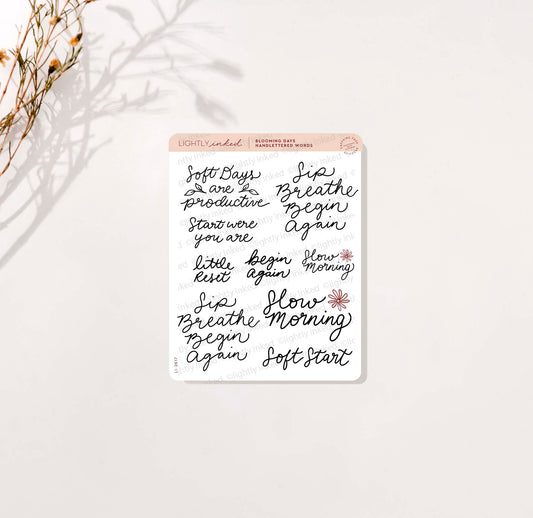 LIGHTLY inked
BLOOMING DAYS
HANDLETTERED WORDS
Soft Days
are
productive
Sip
Breathe
Begin
Again
Start were
you are
little
Reset
begin
again
Slow
Morning
Sip
Breathe
Begin
Again
Slow
Morning
Soft Start
LI-2617
©lightly inked